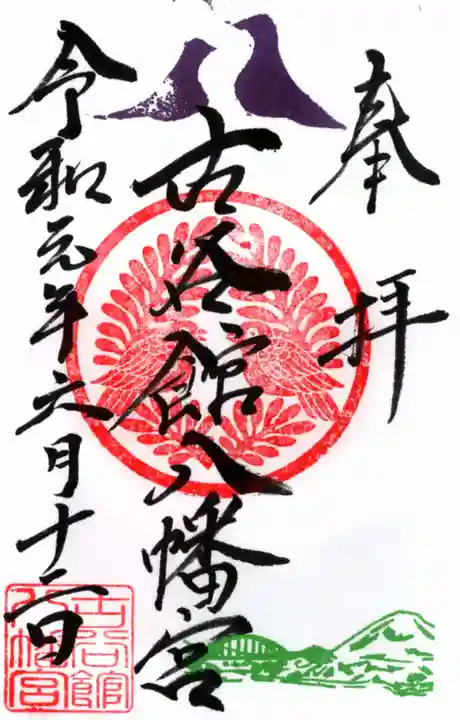 奉拝
古谷館八幡宮
令和元年六月十二日
古谷館八幡宮